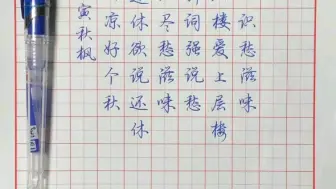 识愁滋味
楼爱上层楼
词强说愁
尽愁滋味
休欲说还休
凉好个秋
寅秋枫